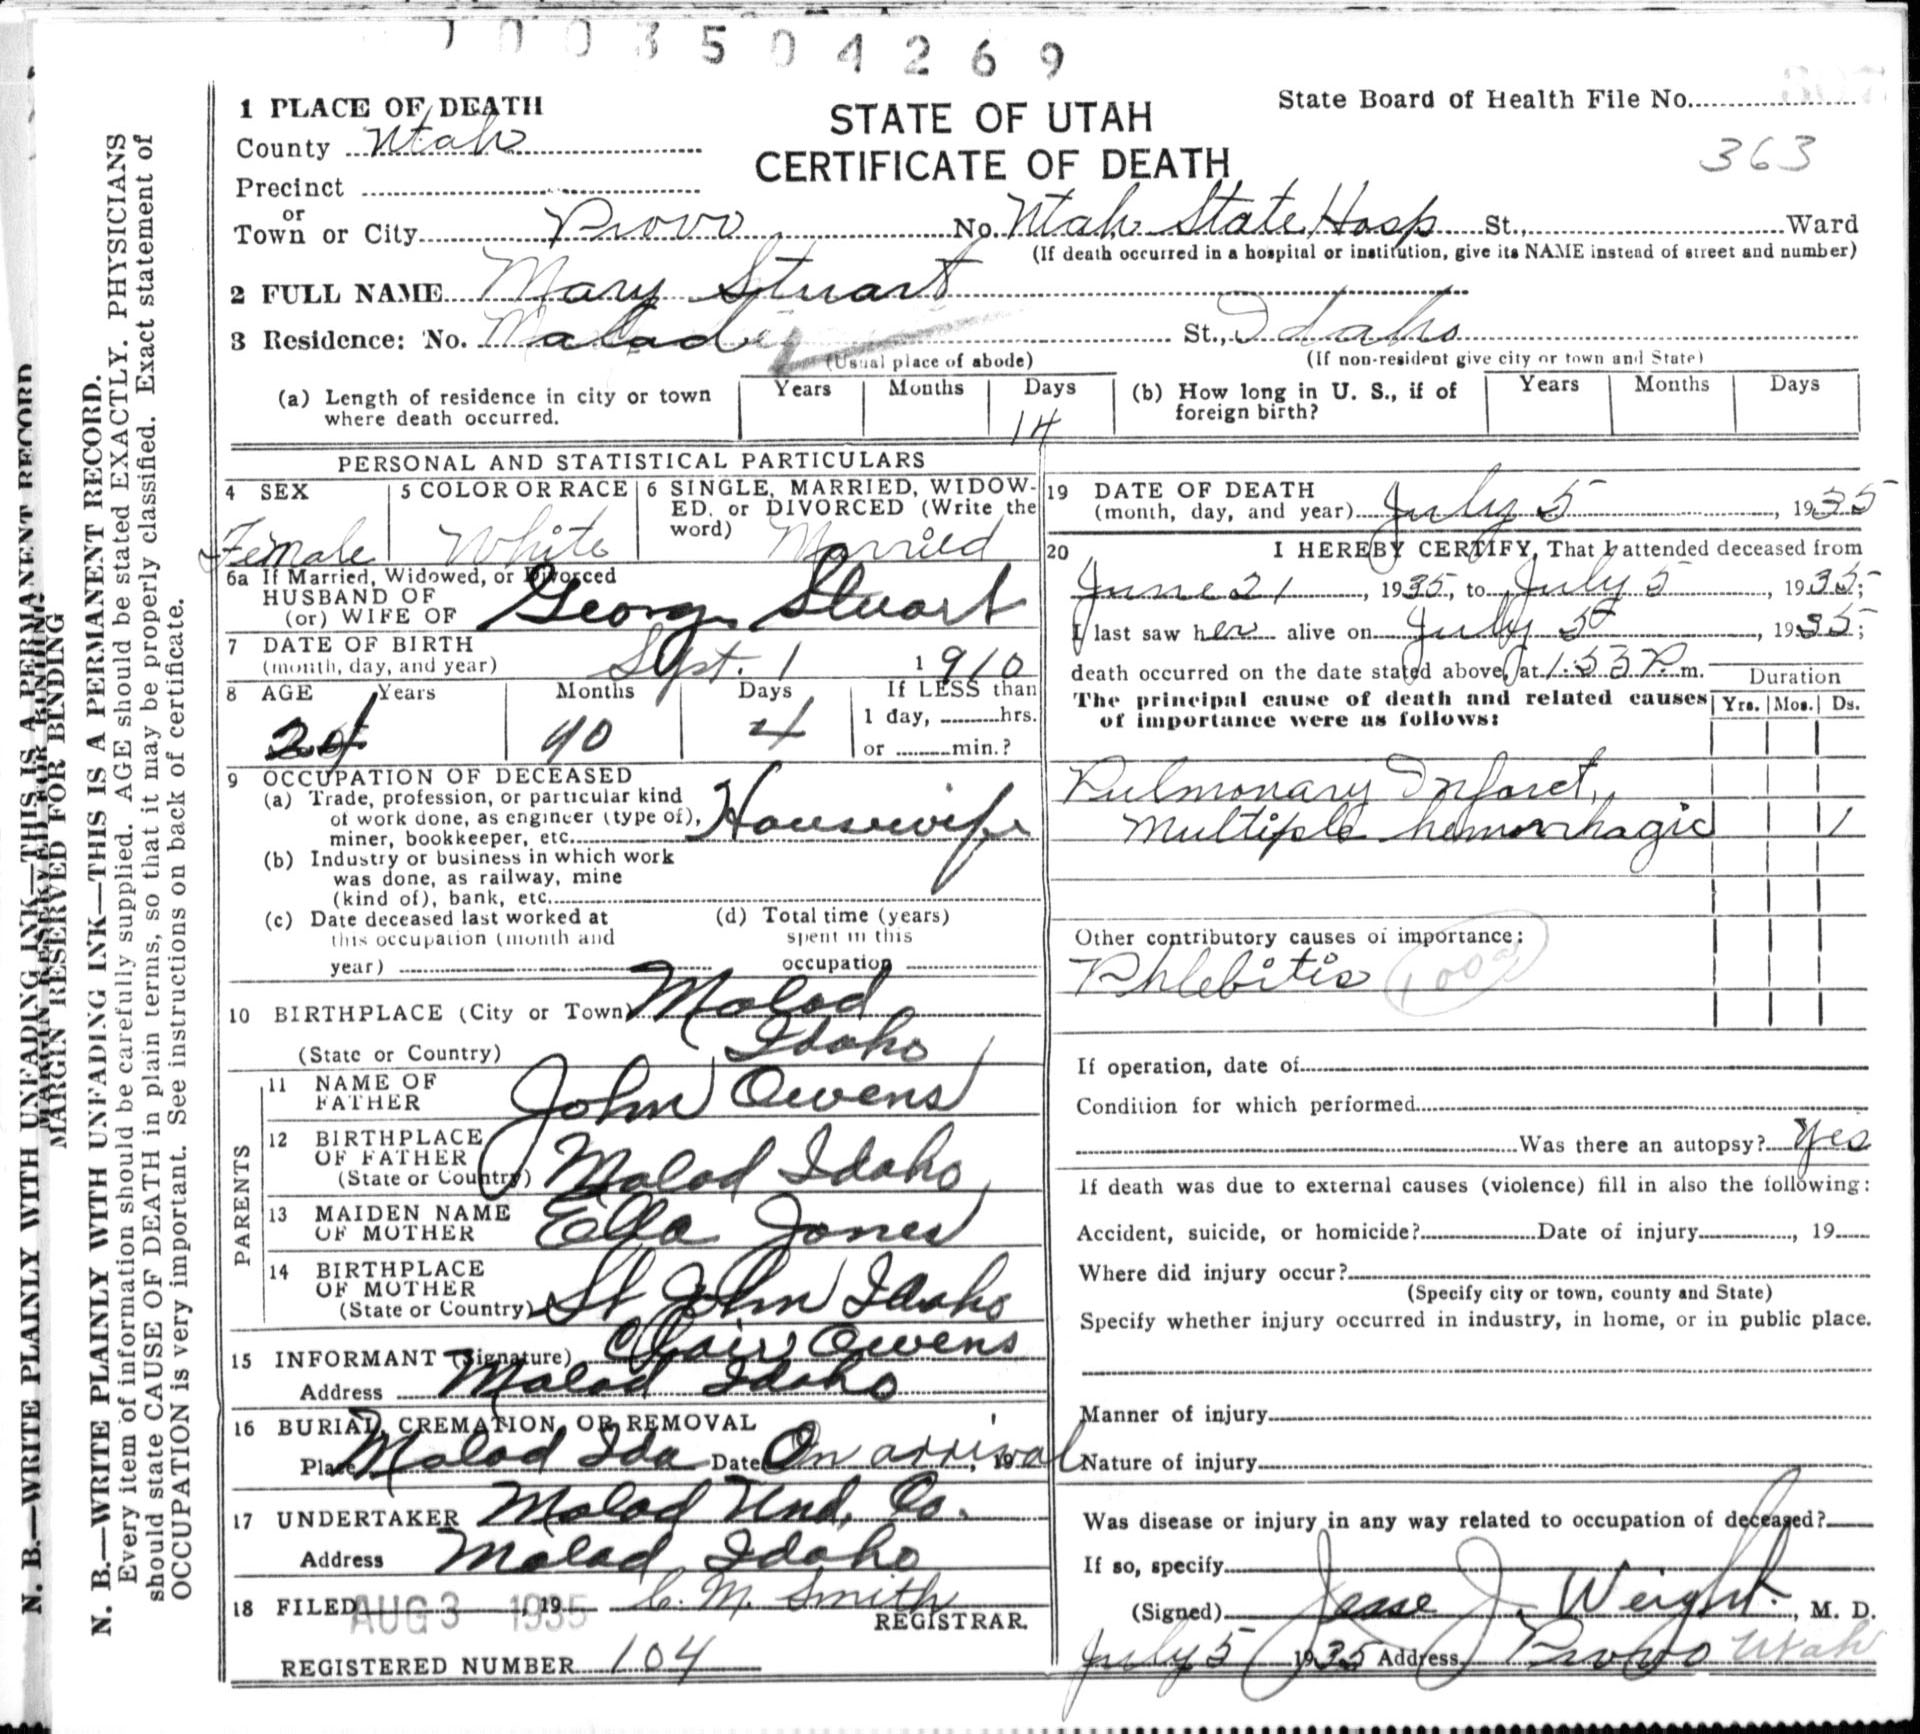 1003504269
1 PLACE OF DEATH
County Utah
Precinct
or
Town or City Provo No. Utah State Hosp St., Ward
(If death occurred in a hospital or institution, give its NAME instead of street and number)
STATE OF UTAH
CERTIFICATE OF DEATH
State Board of Health File No.
363
2 FULL NAME Mary Stuart
3 Residence: No. Malad St., Idaho
(Usual place of abode) (If non-resident give city or town and State)
(a) Length of residence in city or town where death occurred. Years Months Days 14
(b) How long in U. S., if of foreign birth? Years Months Days
PERSONAL AND STATISTICAL PARTICULARS
4 SEX Female
5 COLOR OR RACE White
6 SINGLE, MARRIED, WIDOWED, or DIVORCED (Write the word) Married
6a If Married, Widowed, or Divorced
HUSBAND OF
(or) WIFE OF George Stuart
7 DATE OF BIRTH
(month, day, and year) Sept. 1 1910
8 AGE Years 24 Months 10 Days 4
If LESS than
1 day, hrs.
or min.?
9 OCCUPATION OF DECEASED
(a) Trade, profession, or particular kind
of work done, as engineer (type of),
miner, bookkeeper, etc. Housewife
(b) Industry or business in which work
was done, as railway, mine
(kind of), bank, etc.
(c) Date deceased last worked at
this occupation (month and
year)
(d) Total time (years)
spent in this
occupation
10 BIRTHPLACE (City or Town) Malad
(State or Country) Idaho
PARENTS
11 NAME OF
FATHER John Owens
12 BIRTHPLACE
OF FATHER
(State or Country) Malad Idaho
13 MAIDEN NAME
OF MOTHER Ella Jones
14 BIRTHPLACE
OF MOTHER
(State or Country) St John Idaho
15 INFORMANT (Signature) Clair Owens
Address Malad Idaho
16 BURIAL, CREMATION, OR REMOVAL
Place Malad Ida Date On arrival, 19
17 UNDERTAKER Malad Und. Co.
Address Malad Idaho
18 FILED AUG 3 1935 19 C. M. Smith
REGISTRAR.
REGISTERED NUMBER 104
19 DATE OF DEATH
(month, day, and year) July 5, 1935
20 I HEREBY CERTIFY, That I attended deceased from
June 21, 1935, to July 5, 1935;
I last saw her alive on July 5, 1935;
death occurred on the date stated above, at 1:53 P.m.
The principal cause of death and related causes
of importance were as follows:
Duration
Yrs. Mos. Ds.
Pulmonary Infarct,
Multiple hemorrhagic 1
Other contributory causes of importance:
Phlebitis
If operation, date of
Condition for which performed
Was there an autopsy? Yes
If death was due to external causes (violence) fill in also the following:
Accident, suicide, or homicide? Date of injury, 19
Where did injury occur?
(Specify city or town, county and State)
Specify whether injury occurred in industry, in home, or in public place.
Manner of injury
Nature of injury
Was disease or injury in any way related to occupation of deceased?
If so, specify
(Signed) Jesse J. Weight, M. D.
July 5 1935 Address Provo Utah
N. B.—WRITE PLAINLY WITH UNFADING INK—THIS IS A PERMANENT RECORD
MARGIN RESERVED FOR BINDING
N. B.—WRITE PLAINLY WITH UNFADING INK—THIS IS A PERMANENT RECORD.
Every item of information should be carefully supplied. AGE should be stated EXACTLY. PHYSICIANS
should state CAUSE OF DEATH in plain terms, so that it may be properly classified. Exact statement of
OCCUPATION is very important. See instructions on back of certificate.